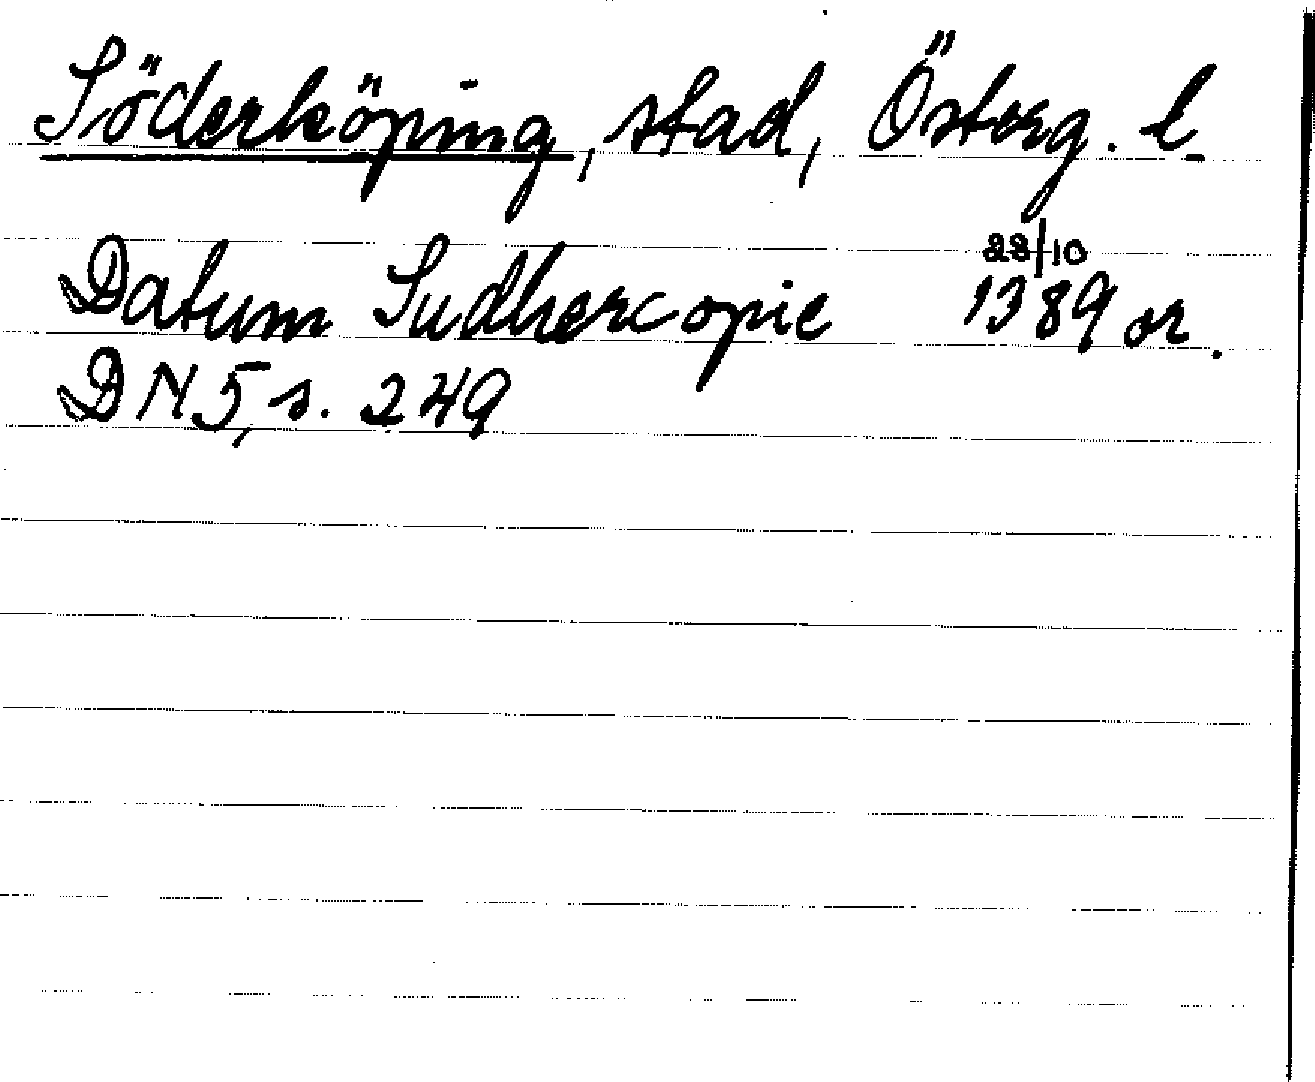 Söderköping, stad, Österg. l.
Datum Sudhercopie 28/10 1389 or.
DN 5, s. 249